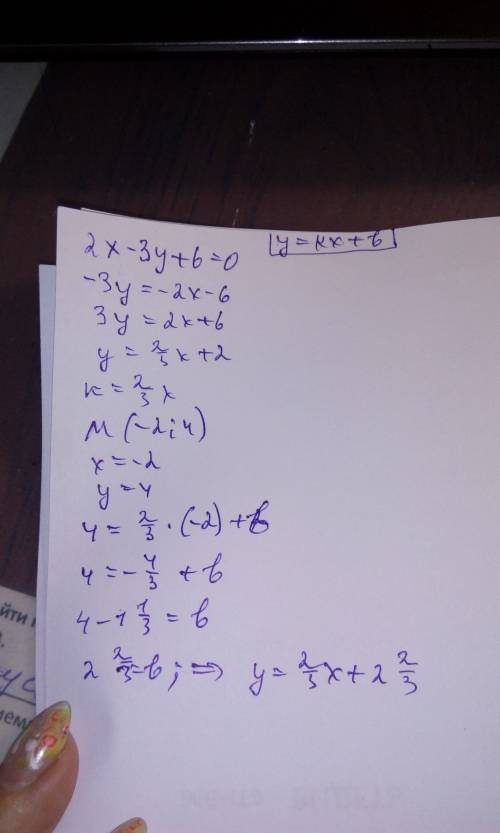 2x-3y+6=0 y=kx+b
-3y=-2x-6
3y=2x+6
y=2/3x+2
k=2/3x
M(-2;4)
x=-2
y=4
4=2/3·(-2)+b
4=-4/3+b
4-1 1/3=b
2 2/3=b; ⇒ y=2/3x+2 2/3
йти